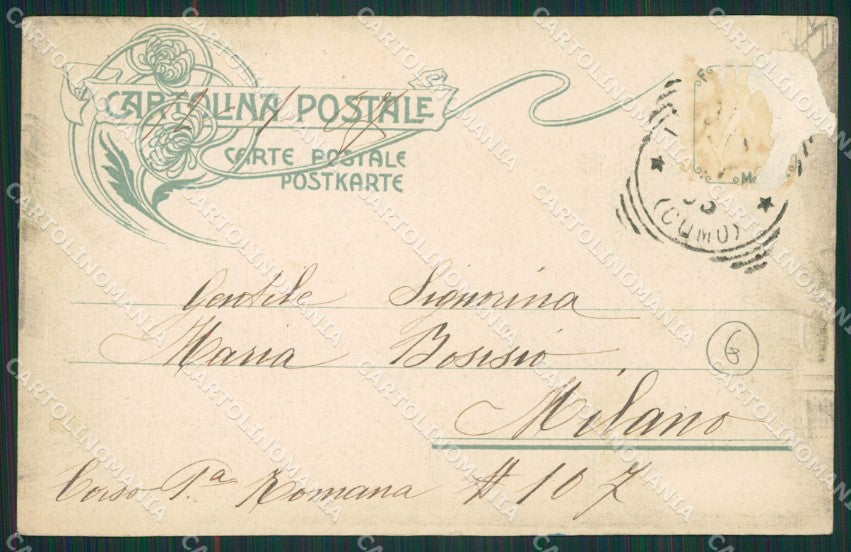 CARTOLINA POSTALE
CARTE POSTALE
POSTKARTE
(COMO)
Gentile Signorina
Maria Bosisio
6
Milano
Corso Pta Romana # 107
CARTOLINOMANIA